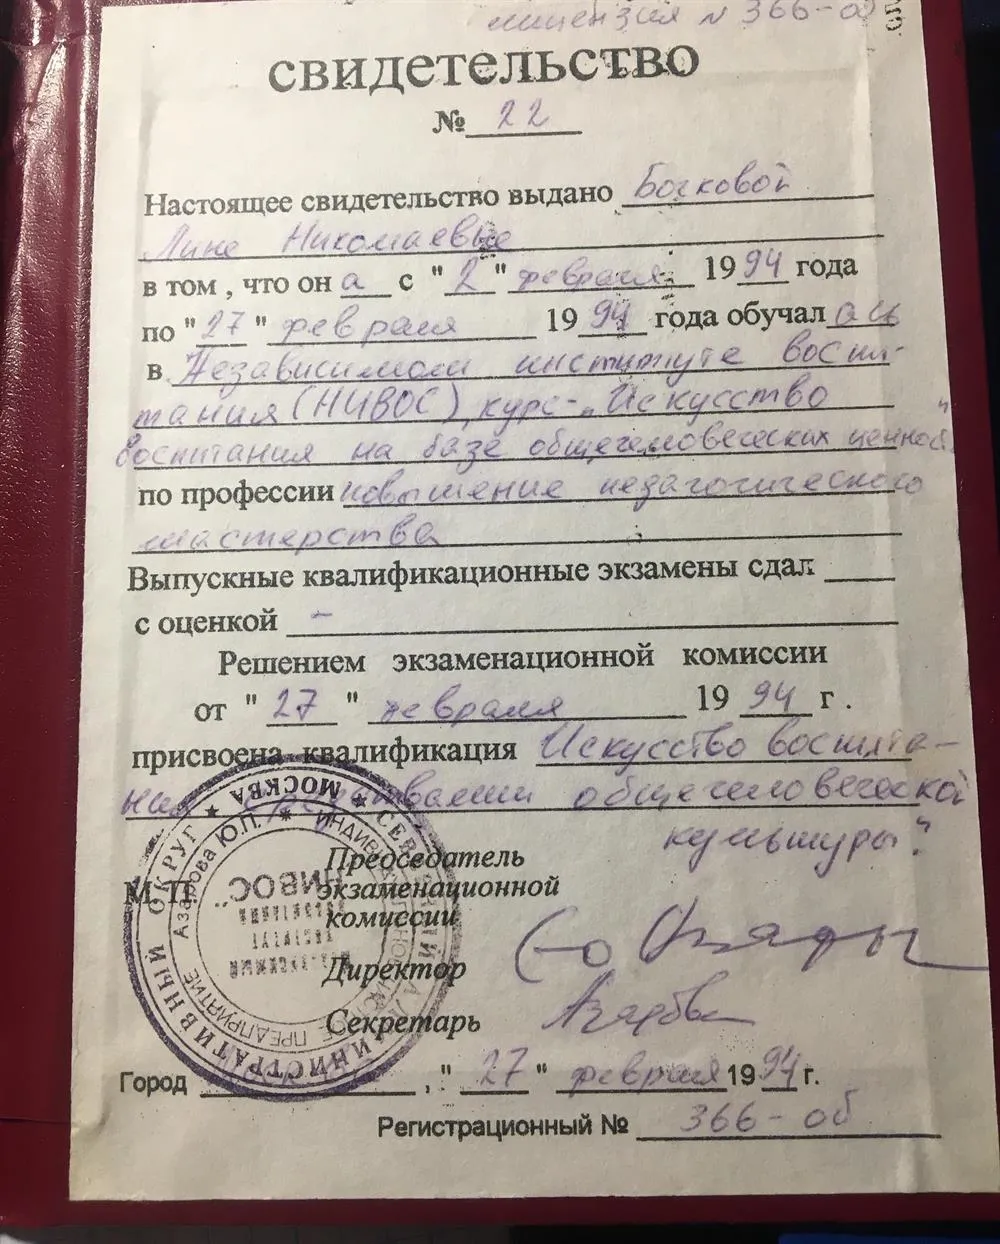 лицензия № 366-об
свидетельство
№ 22
Настоящее свидетельство выдано Бочковой
Лине Николаевне
в том , что он а с "2" февраля 1994 года
по "27" февраля 1994 года обучал ась
в Независимом институте воспи-
тания (НИВОС), курс- „Искусство
воспитания на базе общечеловеческих ценнос."
по профессии повышение педагогического
мастерства
Выпускные квалификационные экзамены сдал
с оценкой -
Решением экзаменационной комиссии
от "27" февраля 1994 г.
присвоена квалификация Искусство воспита-
ния общечеловеческой
культуры"
Председатель
М.П. экзаменационной
комиссии
Директор
Секретарь Азарова
Город , "27" февраля 1994 г.
Регистрационный № 366-об
АДМИНИСТРАТИВНЫЙ ОКРУГ * МОСКВА * СЕВЕР
Азарова Ю.П. * ПРЕДПРИЯТИЕ
"НИВОС"